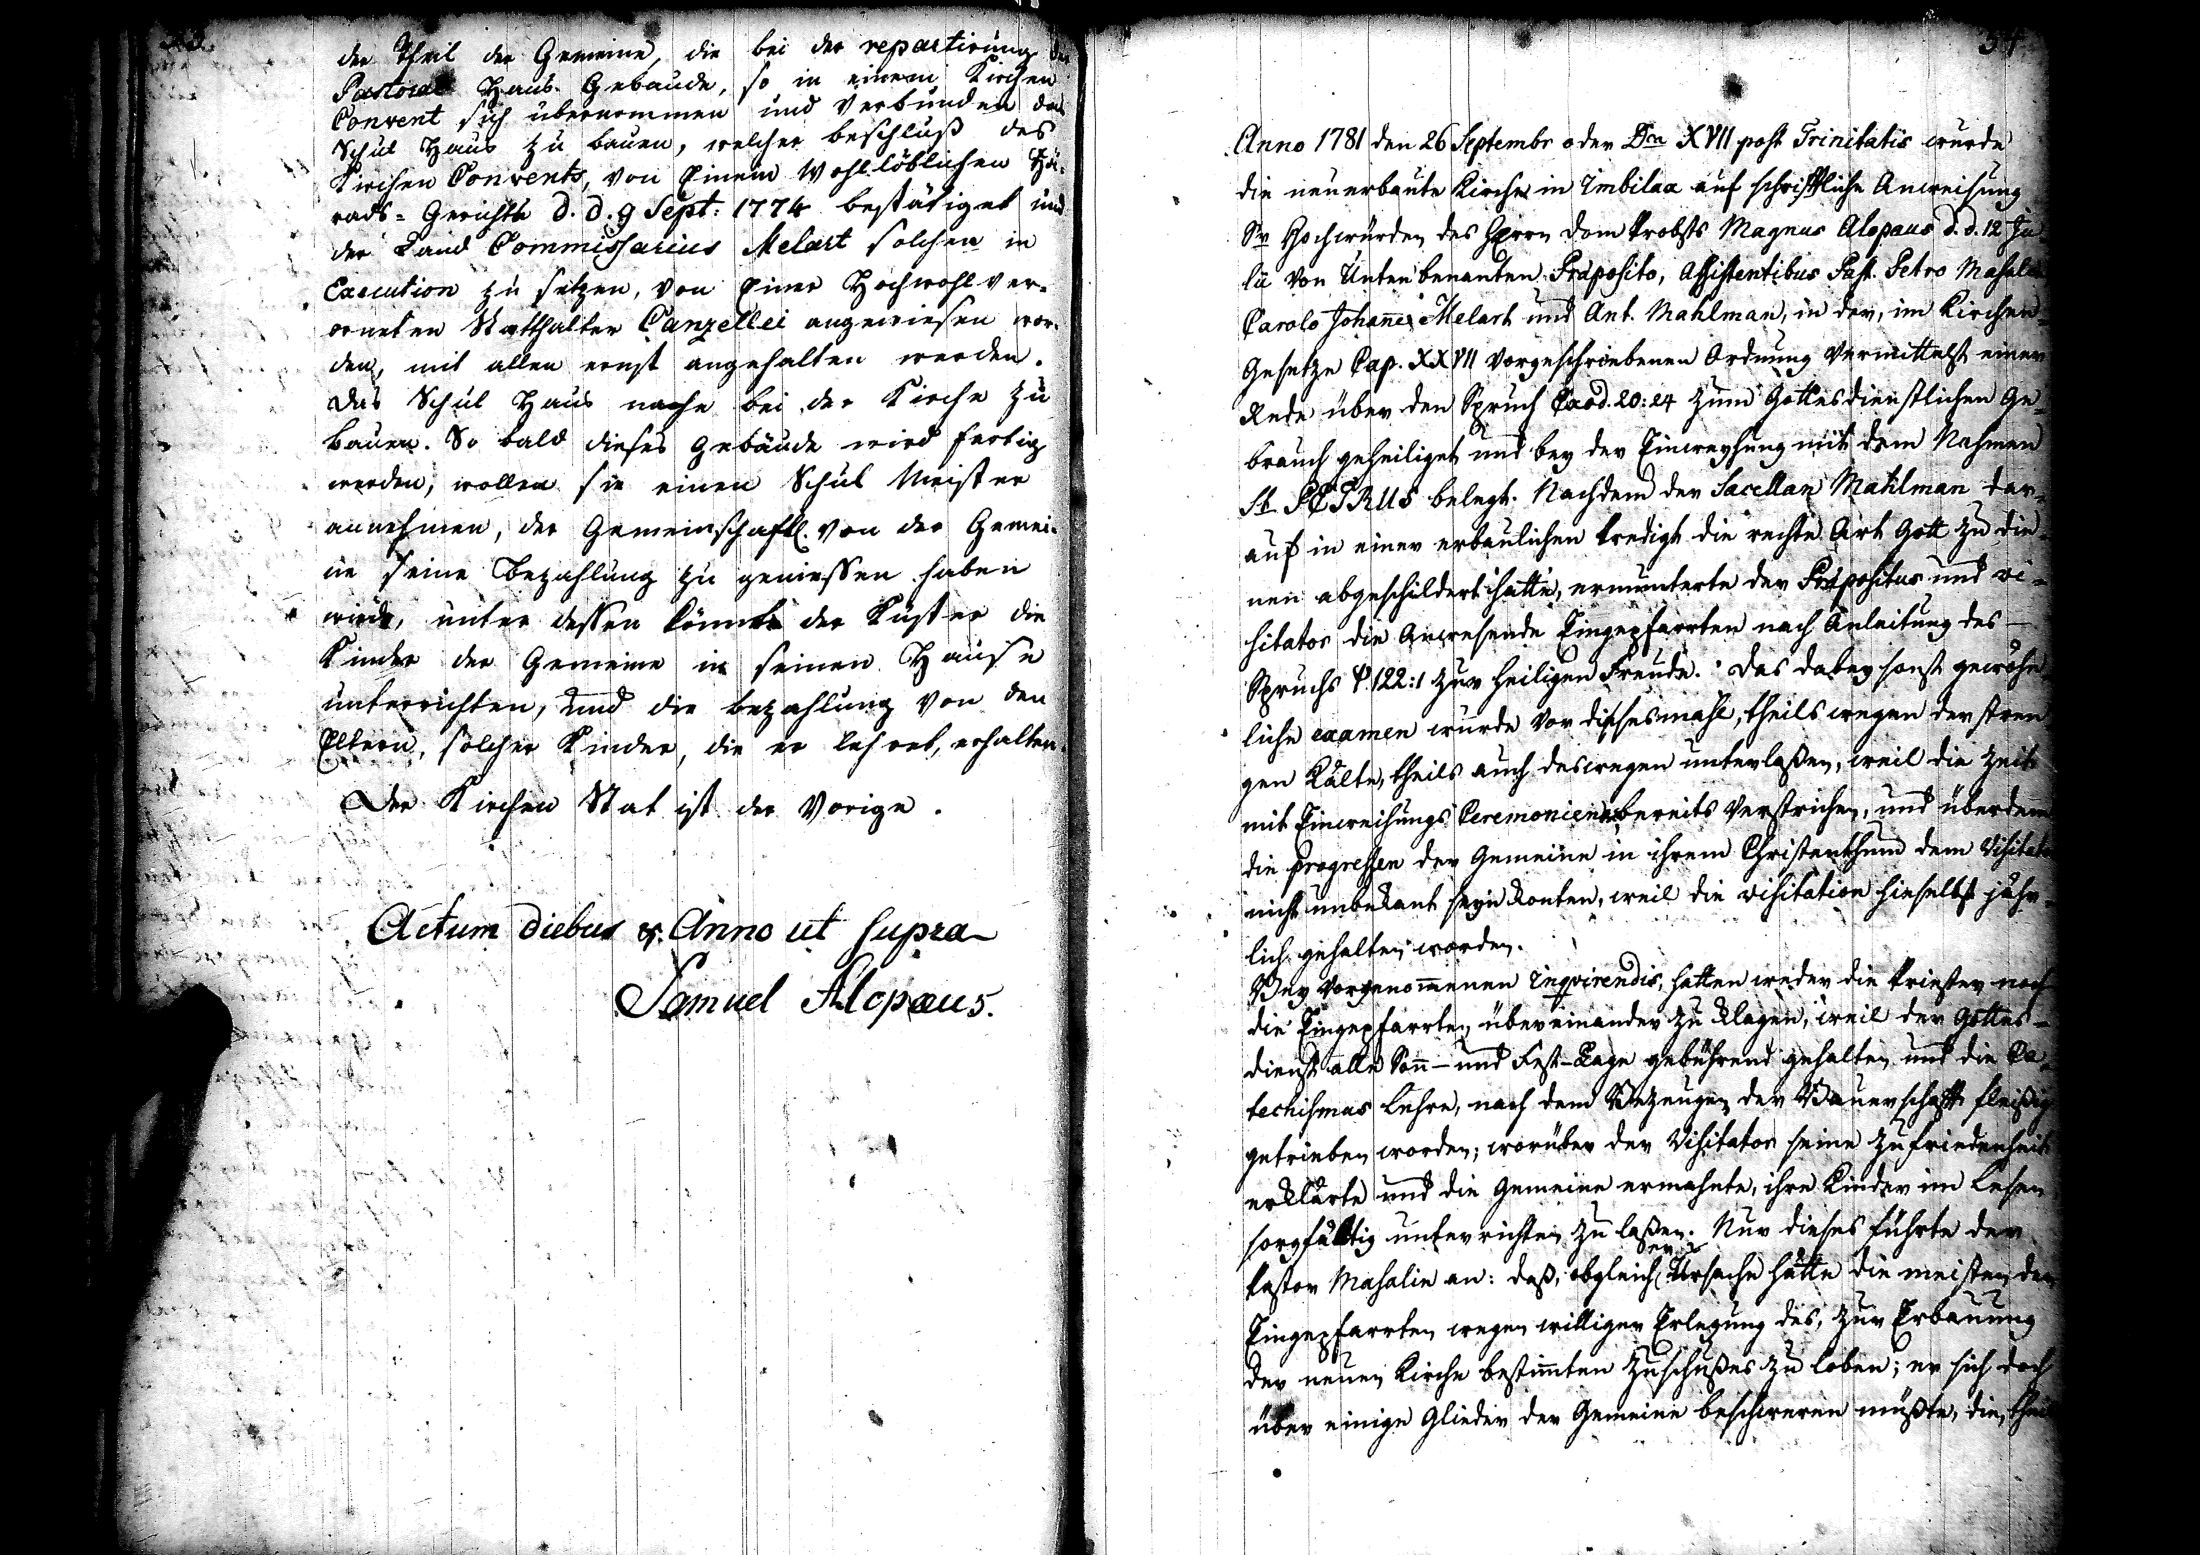 der Theil der Gemeine, die bei der repartirung der
Pastorat Haus Gebäude, so in einem Kirchen
Convent sich übernommen und verbunden das
Schul Haus zu bauen, welcher beschluß des
Kirchen Convents, von Einem Wohllöblichen Hä-
rads-Gerichte d. d. 9 Sept: 1774 bestätiget und
der Land Commissarius Melart solchen in
Execution zu setzen, von Einer Hochwohlver-
orneten Statthalter Canzellei angewiesen wor-
den, mit allen ernst angehalten werden.
Das Schul Haus nahe bei der Kirche zu
bauen. So bald dieses Gebäude wird fertig
werden, wollen sie einen Schul Meister
annehmen, der Gemeinschaftl. von der Gemei-
ne seine Bezahlung zu geniessen haben
würde, unter dessen könnte der Küster die
Kinder der Gemeine in seinen Hause
unterrichten, und die bezahlung von den
Eltern, solcher Kinder, die er lehret, erhalten.
Der Kirchen Stat ist der Vorige.
Actum diebus &. Anno ut supra
Samuel Alopæus.
54
Anno 1781 den 26 Septembr oder Dca XVII post Trinitatis wurde
die neuerbaute Kirche in Imbilax auf schriftliche Anweisung
Sr Hochwürden des Herrn Dom Probsts Magnus Alopæus d. d. 12 Ju-
lii von Unten benanten Præposito, Assistentibus Past. Petro Masalin
Carolo Johanne Melart und Ant. Mahlman, in der, im Kirchen-
Gesetze Cap. XXVII vorgeschriebenen Ordnung vermittelst einer
Rede über den Spruch Exod. 20:24 zum Gottesdienstlichen Ge-
brauch geheiliget und bey der Einweyhung mit dem Nahmen
St PETRUS belegt. Nachdem der Sacellan Mahlman dar-
auf in einer erbaulichen Predigt die rechte Art Gott zu die-
nen abgeschildert hatte, ermunterte der Præpositus und vi-
sitator die Anwesende Eingepfarrten nach Anleitung des
Spruchs Ps. 122:1 zur heiligen Freude. Das dabey sonst gewöhn-
liche examen wurde vor dieses mahl, theils wegen der stren-
gen Kälte, theils auch deswegen unterlaßen, weil die Zeit
mit Einweihungs Ceremonien bereits verstrichen, und überdem
die progressen der Gemeine in ihrem Christenthum dem Visitator
nicht unbekant seyn konten, weil die visitation hieselbst jähr-
lich gehalten worden.
Bey vorgenom̄enen Inqvirendis, hatten weder die Priester noch
die Eingepfarrten über einander zu klagen, weil der Gottes-
dienst alle Son̄- und Fest-Tage gebührend gehalten und die Ca-
techismus Lehre, nach dem Bezeugen der Bauerschafft fleißig
getrieben worden; worüber der Visitator seine Zufriedenheit
erklärte und die Gemeine ermahnte, ihre Kinder im Lesen
sorgfältig unterrichten zu laßen. Nur dieses führte der
Pastor Masalin an: daß, obgleich er Ursache hätte die meisten der
Eingepfarrten wegen williger Erlegung des, zur Erbauung
der neuen Kirche bestim̄ten Zuschußes zu loben; er sich doch
über einige Glieder der Gemeine beschweren müßte, die, theils